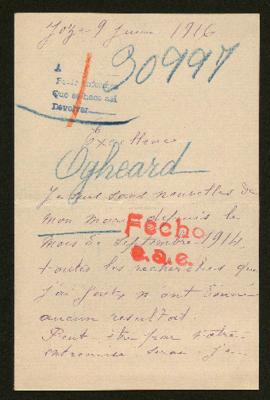 9 Juin 1916
30997
1
Que se hace asi
Devolver
Excellence
Ogheard
sans nouvelles de
mon mari depuis le
mois de Septembre 1914,
toutes les recherches que
j'ai faites n ont donné
aucun resultat.
Peut-être par votre
entremise serai je
Fecho
e.a.e.